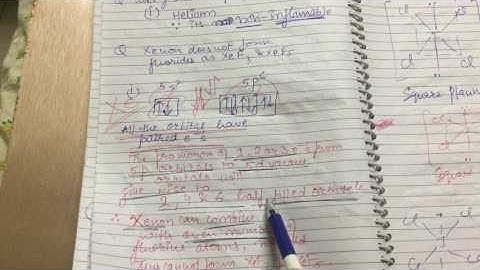 (f) Helium
∴ Its non-inflammable
Q Xenon does not form
fluorides as XeF3 & XeF5
Xe
5s² 5p⁶
All the orbitals have
paired e⁻s
The promotion of 1, 2 or 3 e⁻s from
5p orbitals to 5d vacant
orbitals will
give rise to
2, 4 & 6 half filled orbitals
∴ Xenon can combine
with even number of
fluorine atoms,
Thus cannot form
Cl
Cl
Square planar
Square
Cl
Cl